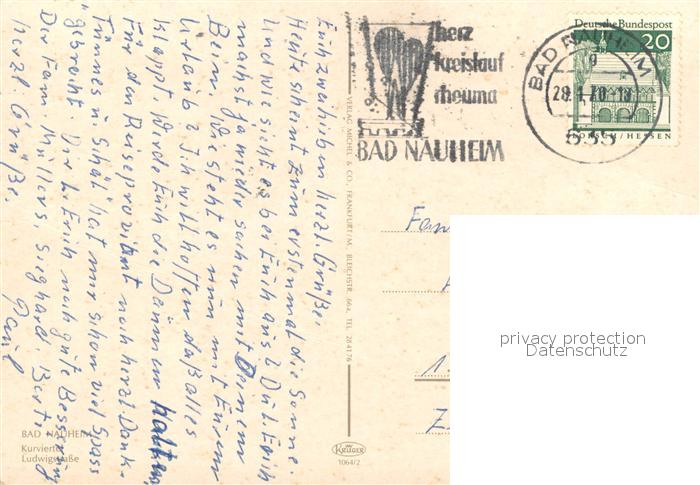 Euch zweien herzl. Grüße.
Heute scheint zum erstenmal die Sonne.
Und wie sieht es bei Euch aus? Du l. Erich
machst ja wieder Sachen mit Deinem
Bein. Wie steht es nun mit Eurem
Urlaub? Ich will hoffen daß alles
klappt werde Euch die Daumen halten,
Für den Reiseproviant noch herzl. Dank.
"Tünnes u Schäl" hat mir schon viel Spass
gebracht. Dir l. Erich noch gute Besserung
Der Fam. Müllers, Sieghard, Berti
herzl. Grüße.
Paul
BAD NAUHEIM
Kurviertel
Ludwigstraße
VERLAG MICHEL & CO., FRANKFURT/M. BLEICHSTR. 66a, TEL. 284176
KRÜGER
1064/2
herz
kreislauf
rheuma
BAD NAUHEIM
Deutsche Bundespost
20
LORSCH / HESSEN
BAD NAUHEIM
g
28.1.70.18
Fam
1.
privacy protection
Datenschutz